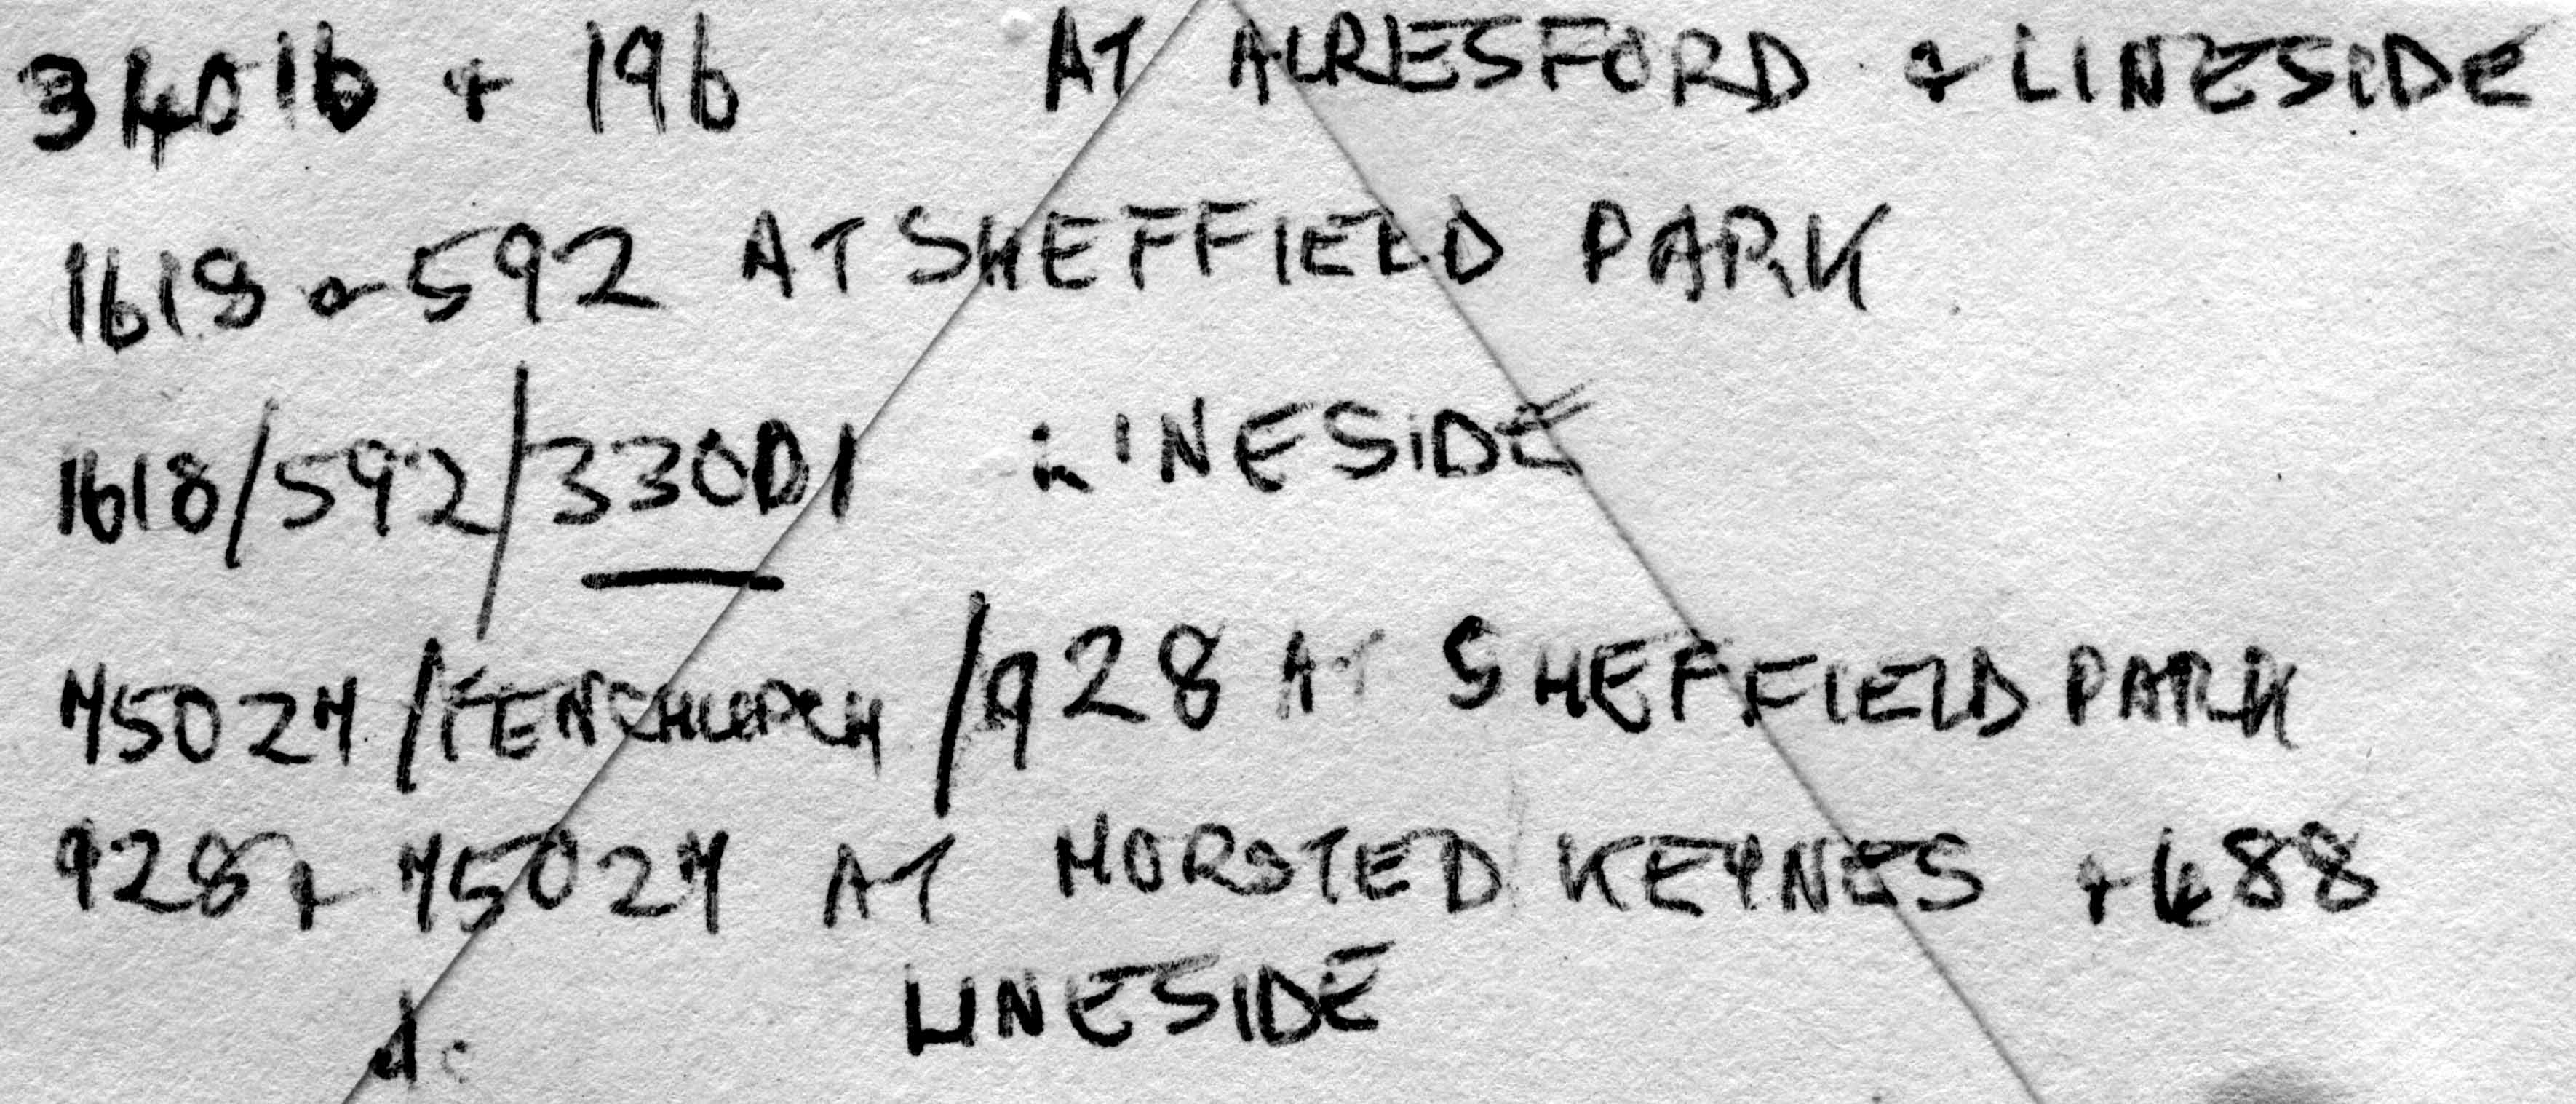 34016 + 196 AT ALRESFORD & LINESIDE
1618 & 592 AT SHEFFIELD PARK
1618/592/33001 LINESIDE
75027/FENCHURCH/928 AT SHEFFIELD PARK
928 + 75027 AT HORSTED KEYNES + 488
do LINESIDE